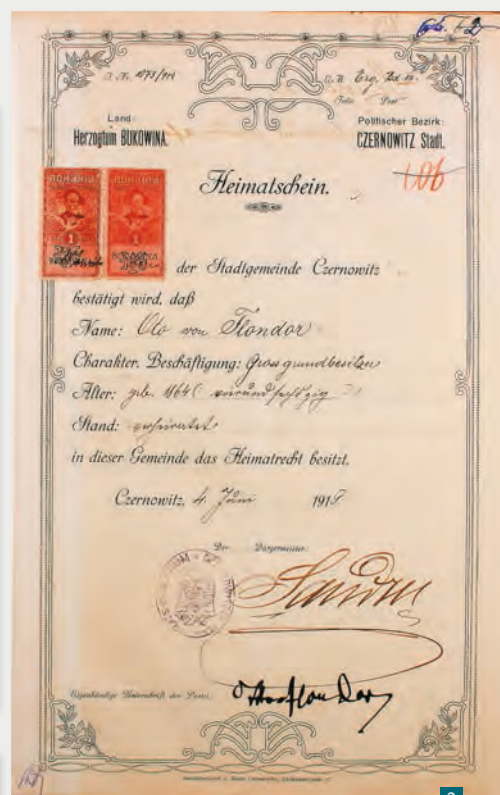 Land:
Herzogtum BUKOWINA.
Politischer Bezirk:
CZERNOWITZ Stadt.
106
Heimatschein.
ROMANIA ROMANIA
1 1
der Stadtgemeinde Czernowitz
bestätigt wird, daß
Name: Olo von Flondor
Charakter, Beschäftigung: Grossgrundbesitzer
Alter: geb. 1864 (vierundsechzig)
Stand: verheiratet
in dieser Gemeinde das Heimatrecht besitzt.
Czernowitz, 4. Juni 191
Der Bürgermeister:
Eigenhändige Unterschrift der Partei:
2